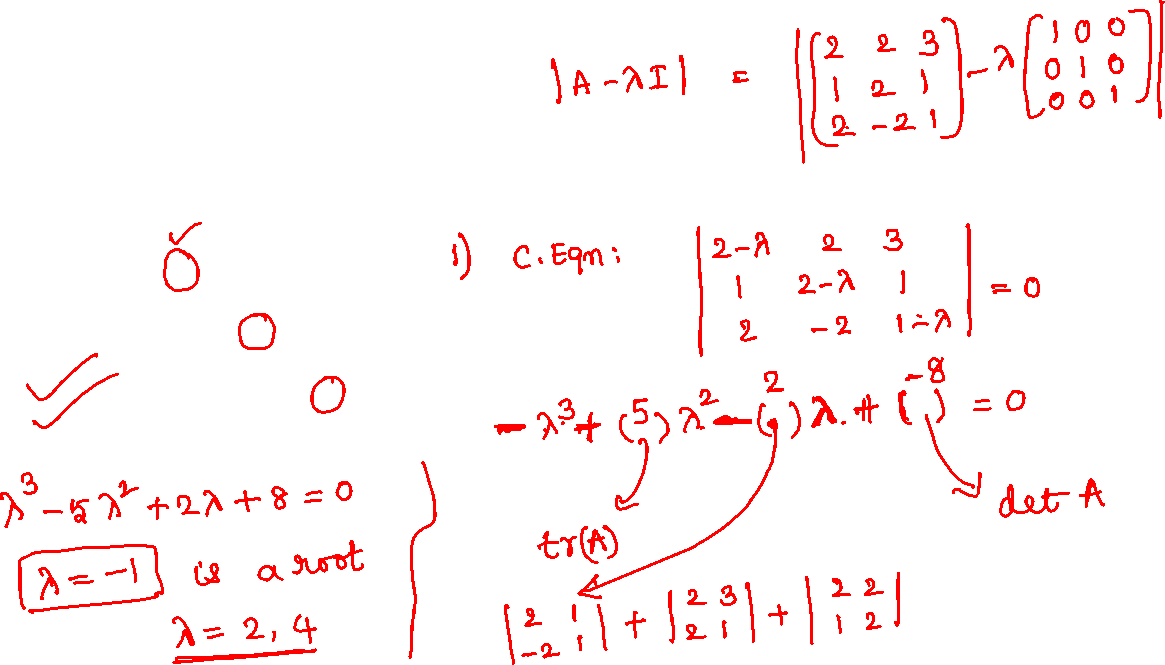 |A - λI| = |[2 2 3
1 2 1
2 -2 1] - λ [1 0 0
0 1 0
0 0 1]|
1) C. Eqn: |2-λ 2 3
1 2-λ 1
2 -2 1-λ| = 0
-λ³ + (5)λ² - (2)λ + (-8) = 0
tr(A)
det A
|2 1
-2 1| + |2 3
2 1| + |2 2
1 2|
λ³ - 5λ² + 2λ + 8 = 0
λ = -1 is a root
λ = 2, 4